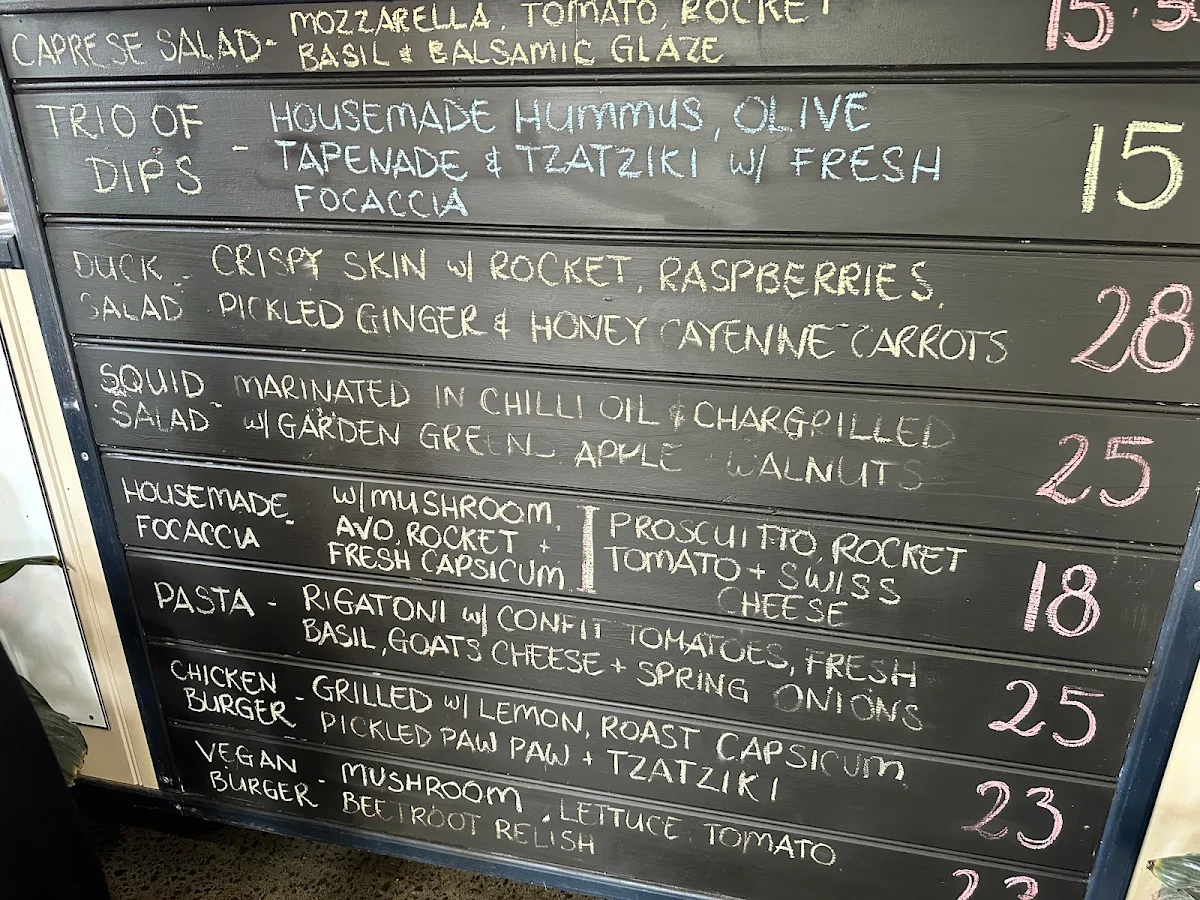 CAPRESE SALAD- MOZZARELLA, TOMATO, ROCKET
BASIL & BALSAMIC GLAZE
15.5
TRIO OF DIPS - HOUSEMADE HUMMUS, OLIVE
TAPENADE & TZATZIKI W/ FRESH
FOCACCIA
15
DUCK - CRISPY SKIN W/ ROCKET, RASPBERRIES,
SALAD PICKLED GINGER & HONEY CAYENNE CARROTS
28
SQUID MARINATED IN CHILLI OIL & CHARGRILLED
SALAD - W/ GARDEN GREEN APPLE WALNUTS
25
HOUSEMADE FOCACCIA - W/ MUSHROOM,
AVO, ROCKET +
FRESH CAPSICUM
PROSCUITTO, ROCKET
TOMATO + SWISS
CHEESE
18
PASTA - RIGATONI W/ CONFIT TOMATOES, FRESH
BASIL, GOATS CHEESE + SPRING ONIONS
25
CHICKEN BURGER - GRILLED W/ LEMON, ROAST CAPSICUM
PICKLED PAW PAW + TZATZIKI
23
VEGAN BURGER - MUSHROOM, LETTUCE, TOMATO
BEETROOT RELISH
23